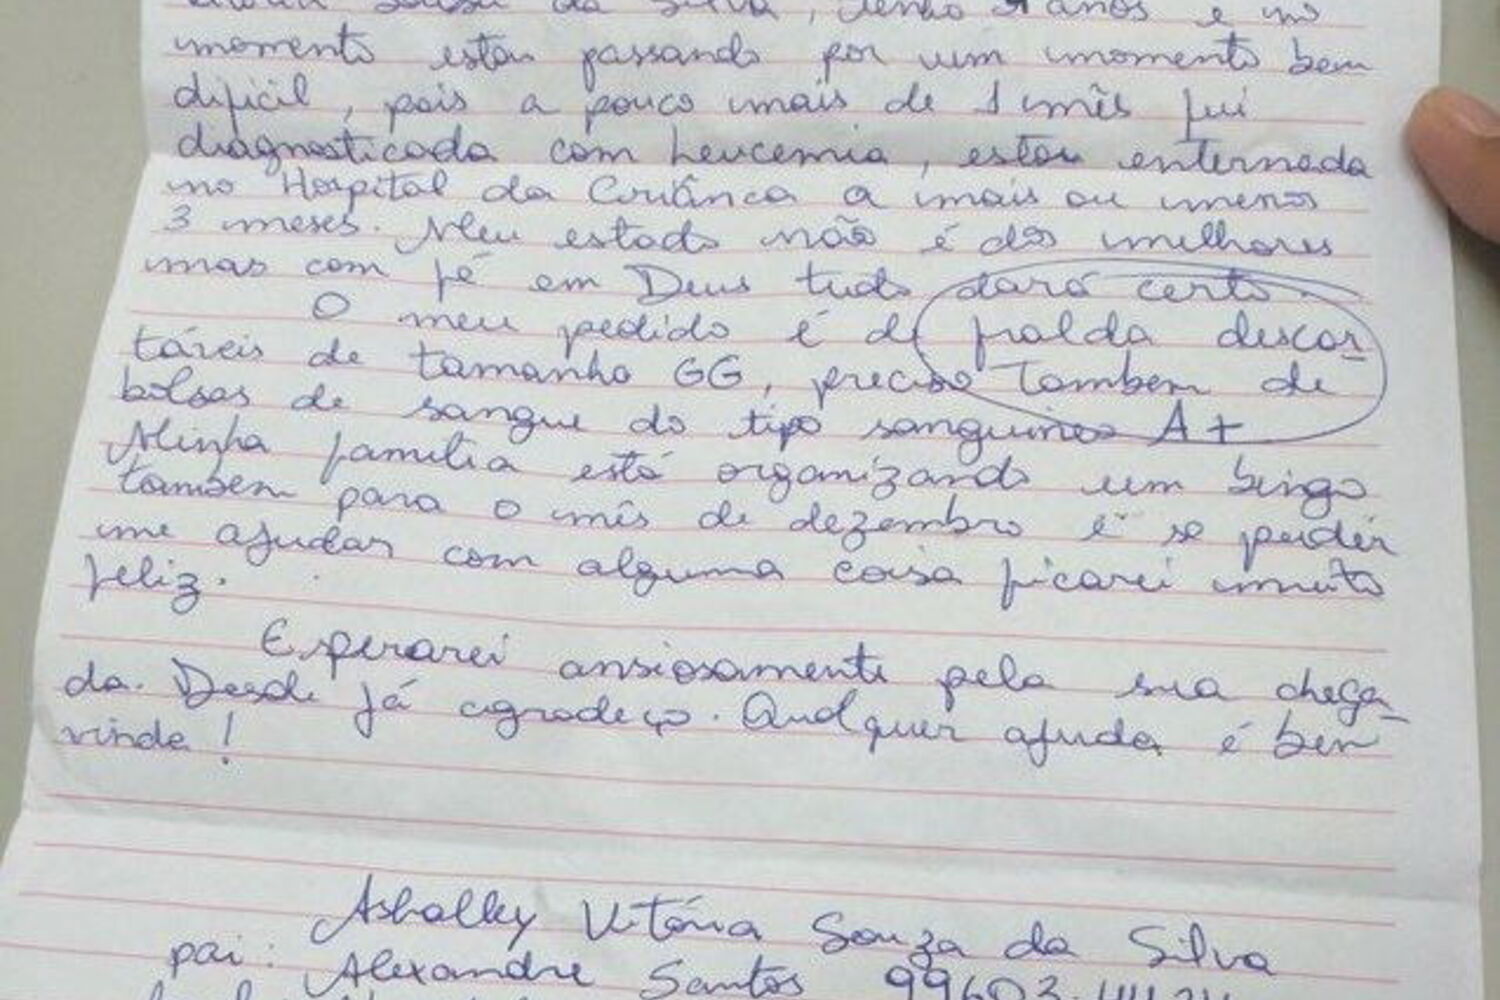 Souza da Silva, tenho anos e no
momento estou passando por um momento bem
dificil, pois a pouco mais de 1 mês fui
diagnosticada com Leucemia, estou enternada
no Hospital da Criânca a mais ou menos
3 meses. Meu estado não é dos melhores
mas com fé em Deus tudo dará certo.
O meu pedido é de fralda descar
táveis de tamanho GG, preciso Tambem de
bolsas de sangue do tipo sanguineo A+
Minha familia está organizando um bingo
tambem para o mês de dezembro e se puder
me ajudar com alguma coisa ficarei muito
feliz.
Esperarei ansiosamente pela sua chega
da. Desde já agradeço. Qualquer ajuda é bem
vinda!
Ashalley Vitória Souza da Silva
pai: Alexandre Santos 99603